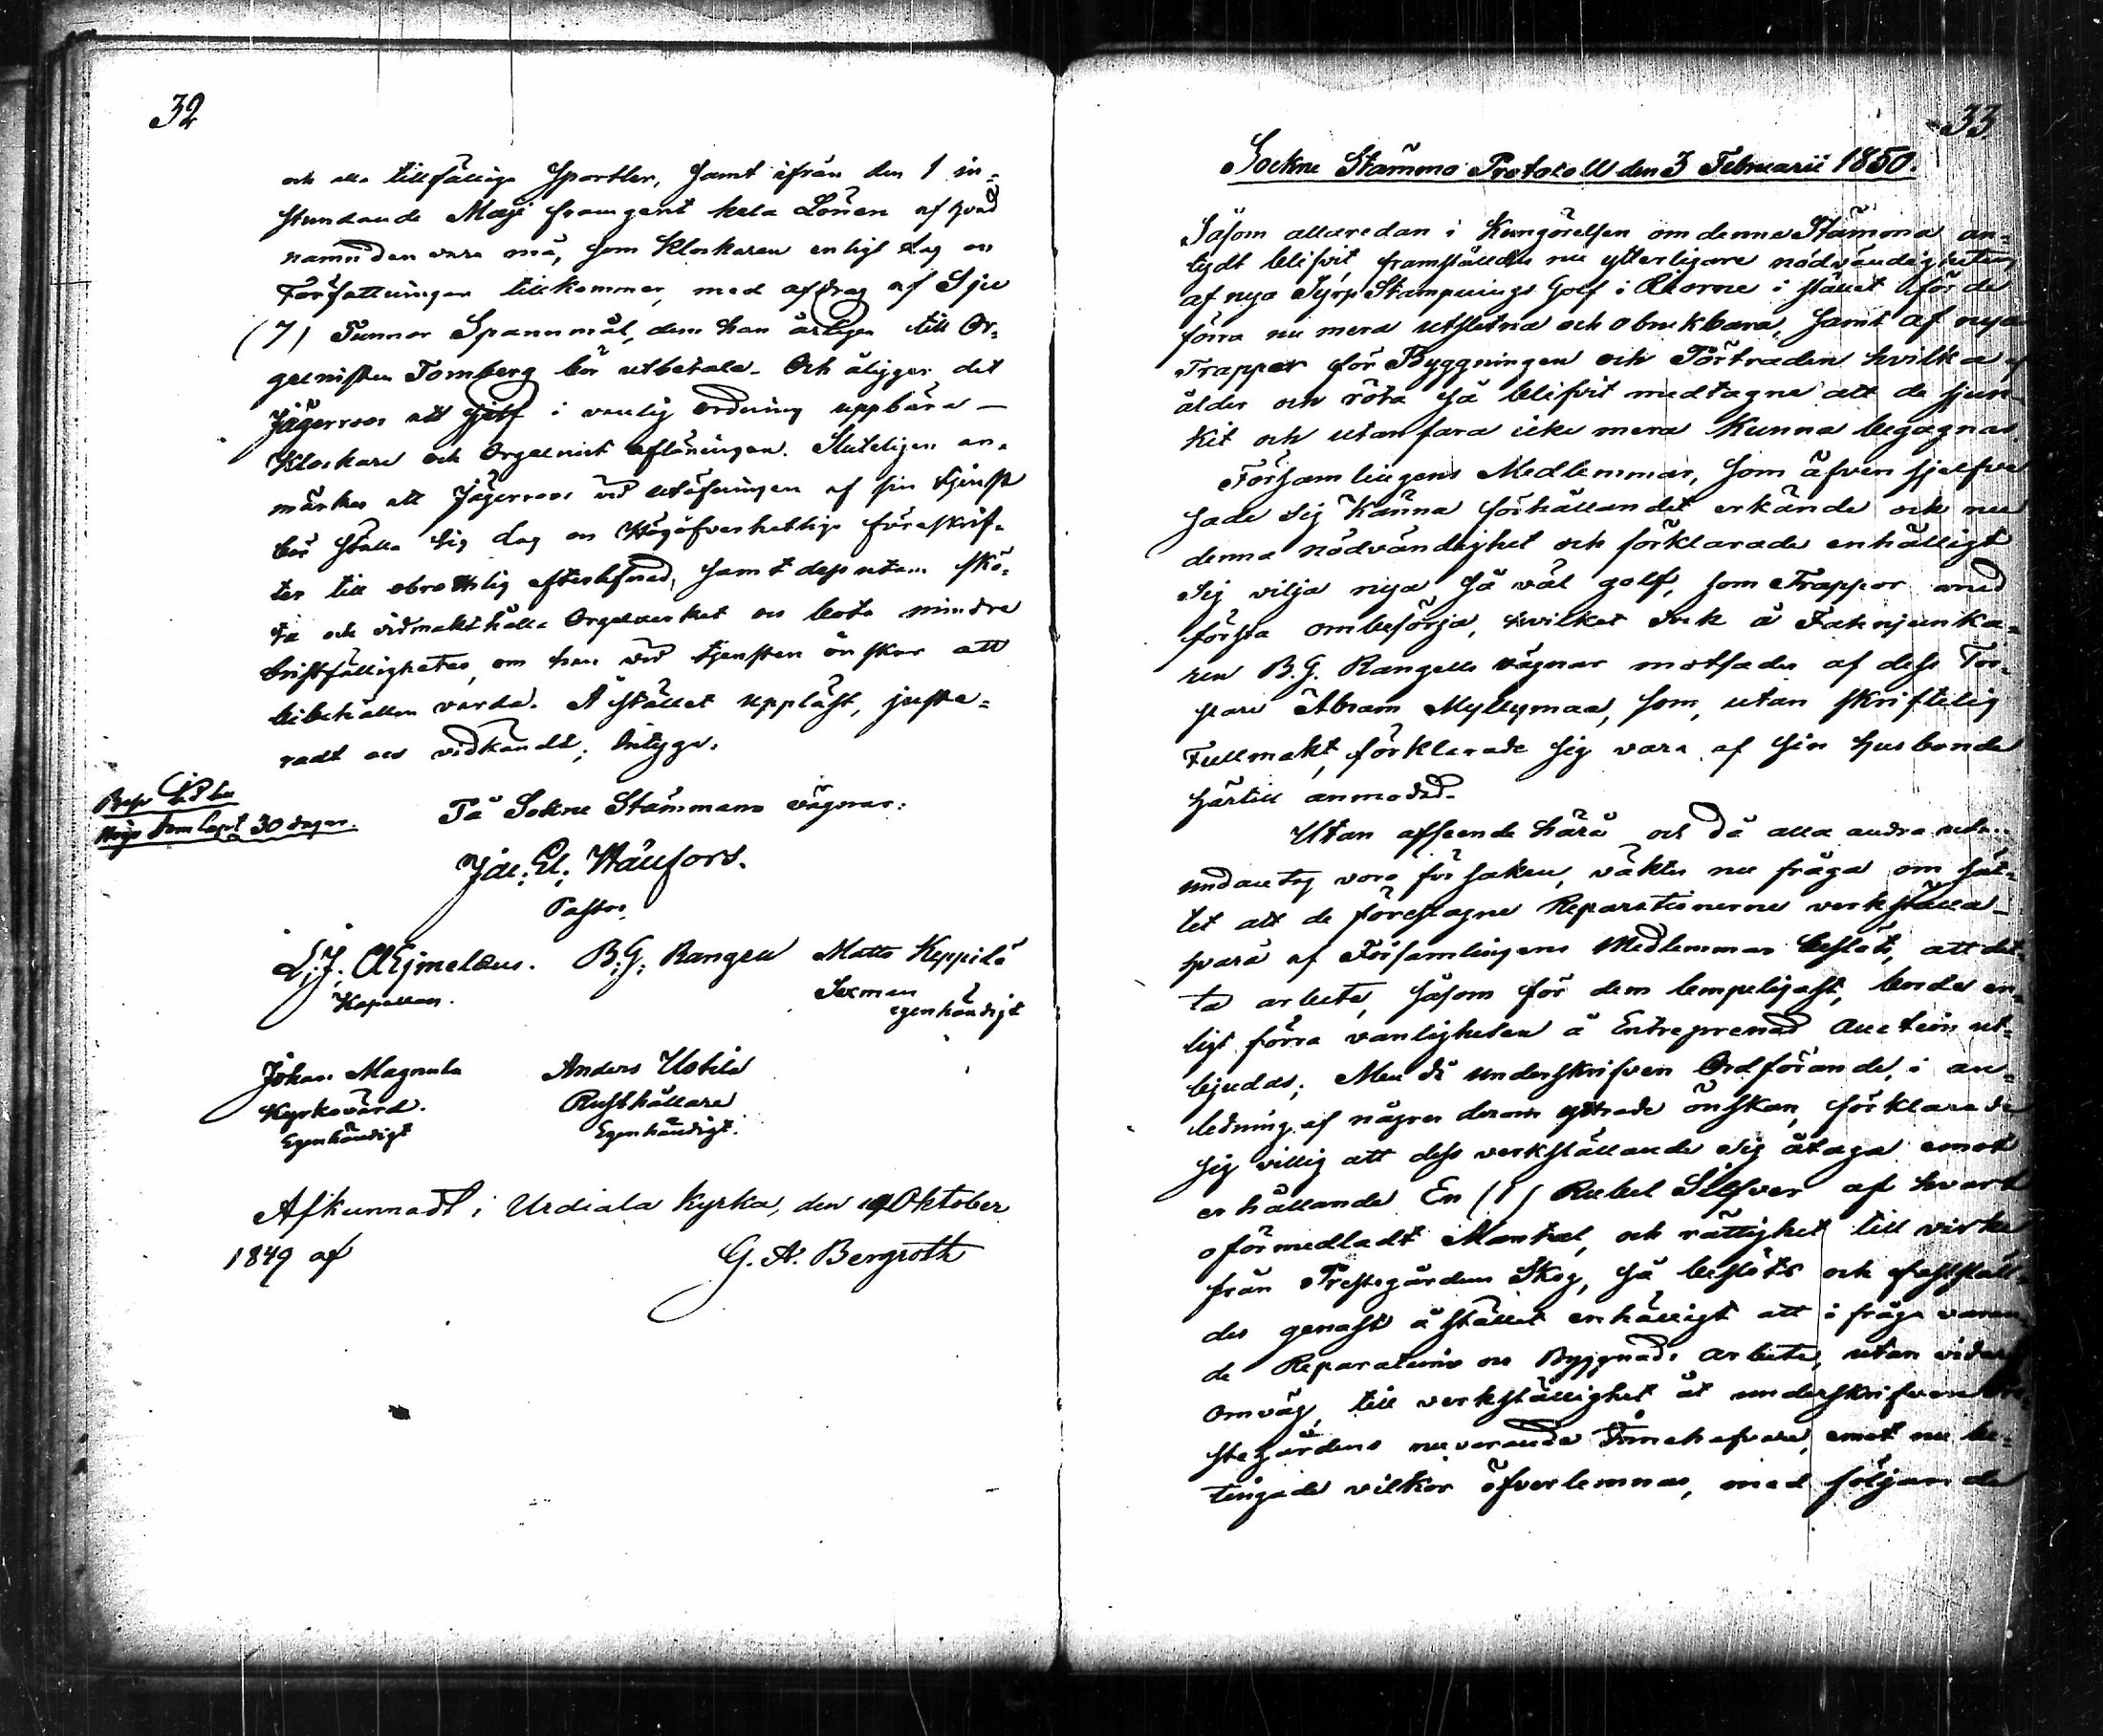 32
och alla tillfällige Sportler, samt ifrån den 1 in-
stundande Maji framgent hela Lönen af hvad
namn den vara må, som Klockaren enligt Lag och
Författningar tillkommer, med afdrag af Sju
(7) Tunnor Spannmål, dem han årligen till Or-
gelnisten Tomberg bör utbetala. Och åligger det
Jägerroos att sjelf i vanlig ordning uppbära
Klockare och Orgelnist aflöningen. Slutligen an-
märkes att Jägerroos vid utöfningen af sin tjenst
bör ställa sig Lag och Högöfverhetliga föreskrif-
ter till obrottslig efterlefnad, samt dessutom skö-
ta och vidmakthålla Orgelverket och bota mindre
bristfälligheter, om han vid tjensten önskar att
bibehållen varda. På stället uppläst, juste-
radt och vidkändt; Intyga.
30 dagar.
På Sokne Stämmans vägnar:
Jac: Ed: Wällfors.
Pastor.
L: J: Æjmelæus. B: G: Rangell Matts Keppilä
Kapellan. Sexman
egenhändigt
Johan Magnula Anders Uotila
Kyrkovärd. Rusthållare
Egenhändigt Egenhändigt.
Afkunnadt i Urdiala Kyrka, den 14 Oktober
1849 af G. A. Bergroth
33.
Sockne Stämmo Protokoll den 3 Februarii 1850.
Såsom allaredan i Kungörelsen om denna Stämma an-
tydt blifvit, framställdes nu ytterligare nödvändigheten
af nya Golf i Riorne i stället för de
förra nu mera utslitna och obrukbara, samt af nya
Trappor för Byggningen och Förtraden hvilka af
ålder och röta så blifvit medtagne att de sjun-
kit och utan fara icke mera kunna begagnas.
Församlingens Medlemmar, som äfven sjelfve
sade sig känna förhållandet erkände ock nu
denna nödvändighet och förklarade enhälligt
sig vilja nya så väl golf, som Trappor med
första ombesörja, hvilket dock å Fanjunka-
ren B. G. Rangells vägnar motsades af dess Tor-
pare Abram Myllymaa, som, utan skriftelig
Fullmakt, förklarade sig vara af sin husbonde
härtill anmodad.
Utan afseende härå och då alla andra utan
undantag voro för saken, väktes nu fråga om sät-
tet att de föreslagne Reparationerne verkställa
hvarå af Församlingens Medlemmar beslöts, att det-
ta arbete, såsom för dem lempeligast, borde en-
ligt förra vanligheten å Entreprenad Auction ut-
bjudas; Men då underskrifven Ordförande, i an-
ledning af några derom yttrade önskan, förklarade
sig villig att dess verkställande sig åtaga emot
erhållande En (1) Rubel Silfver af hvart
oförmedladt Mantal, och rättighet till virke
från Prestegårdens Skog, så beslöts och fastställ-
des genast å stället enhälligt att i fråga varan-
de Reparations och Byggnads arbete, utan vidare
omväg, till verkställighet åt underskrifven Pre-
stegårdens nuvarande Innehafvare, emot nu be-
tingade vilkor öfverlemnas, med följande